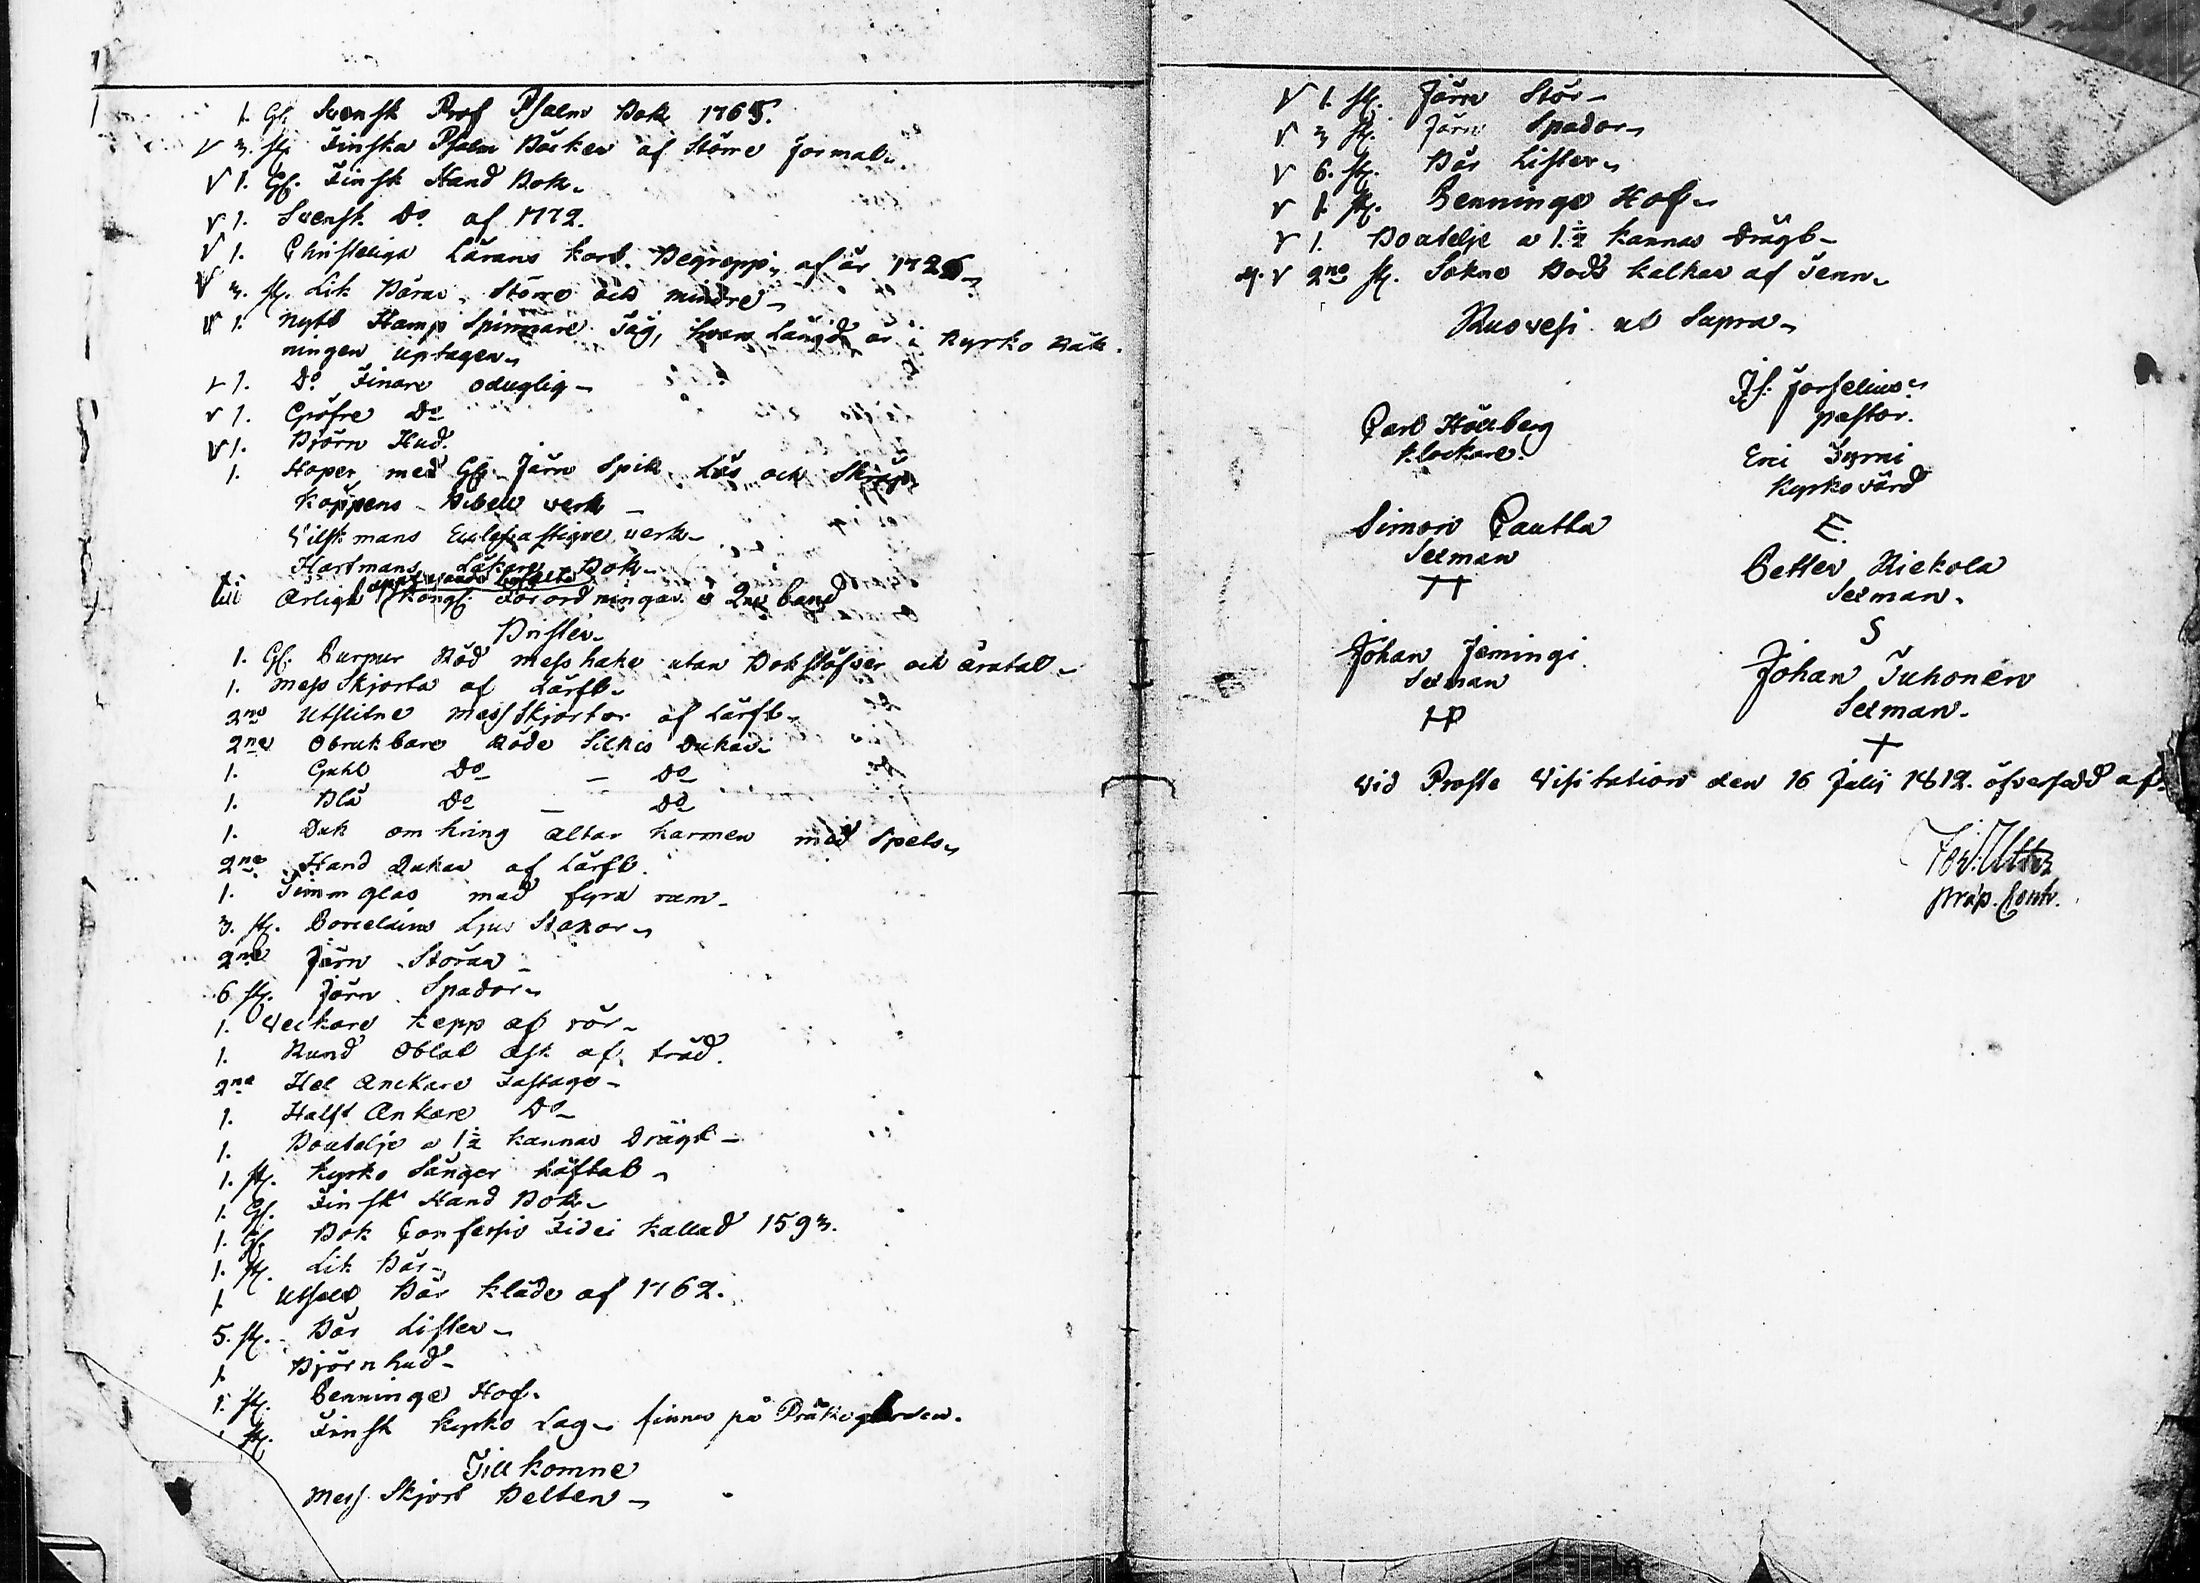 1. Gl. Svensk Prof Psalm Bok 1765.
V 3. st. Finska Psalm Böcker af Större format.
V 1. Gl. Finsk Hand Bok.
V 1. Svensk Do af 1772.
V 1. Christeliga Lärans kort. Begrepp, af år 1726
V 3. st. Lik Bårar, Större och mindre
V 1. Nytt Hamp Spinnare Tåg, hvars Längd är i Kyrko Räk
ningen uptagen
V 1. Do Finare oduglig
V 1. Gröfre Do
V 1. Björn Hud.
1. Hoper med Gl. Järn Spik, Lås och Skräp
Köppens Bibel verk
Vilskmans Ecclesiastique verk
Hartmans Läkare Bok
till Årlige Kongl. Förordningar i 2ne band
Brister
1. Gl. Purpur Röd mess hake utan Bokstäfver och åratal
1. Mess Skjorta af Lärft
2ne Utslitne Mess Skjortor af Lärft
2ne Obrukbare Röde Silkes Dukar
1. Guhl Do — Do
1. Blå Do — Do
1. Duk omkring Altar karmen med Spets
2ne Hand Dukar af Lärft.
1. Timm glas med fyra ram
3. st. Porcelains Ljus Stakar
2ne Järn Störar
6 st. Järn Spador
1. Veckare kepp af rör
1. Rund Oblat Ask af träd.
2ne Hel Anckare Fastage
1. Halft Ankare Do
1. Boutelje a 1½ kannas Drägt
1. st. Kyrko Sånger häftat
1. Gl. Finsk Hand Bok
1. Gl. Bok Confessio Fidei kallad 1593.
1. st. Lik Bår
1 Utslet Bår kläde af 1762.
5. st. Bår Lister
1. Björnhud
1. st. Penninge Hof.
1 st. Finsk Kyrko Lag finnes på Prästegården.
Tillkomne
Mess Skjort Belten
V 1. st. Järn Stör
V 3 st. Järn Spador
V 6. st. Bår Lister
V 1. st. Penninge Hof
V 1. Boutelje a 1.½ kannas Drägt
V 2ne st. Sokne Bods kalkar af Tenn
Ruovesi ut Supra
Js. Forselius
pastor.
Carl Höckberg
klockare.
Eric Tyrni
Kyrkovärd
E.
Simon Pautta
Sexman
Petter Riekola
Sexman.
S
Johan Jemingi
Sexman
HP
Johan Tuhonen
Sexman
+
Vid Proste Visitation den 16 Julij 1812. öfversedd af
Utter
Præp. Contr.